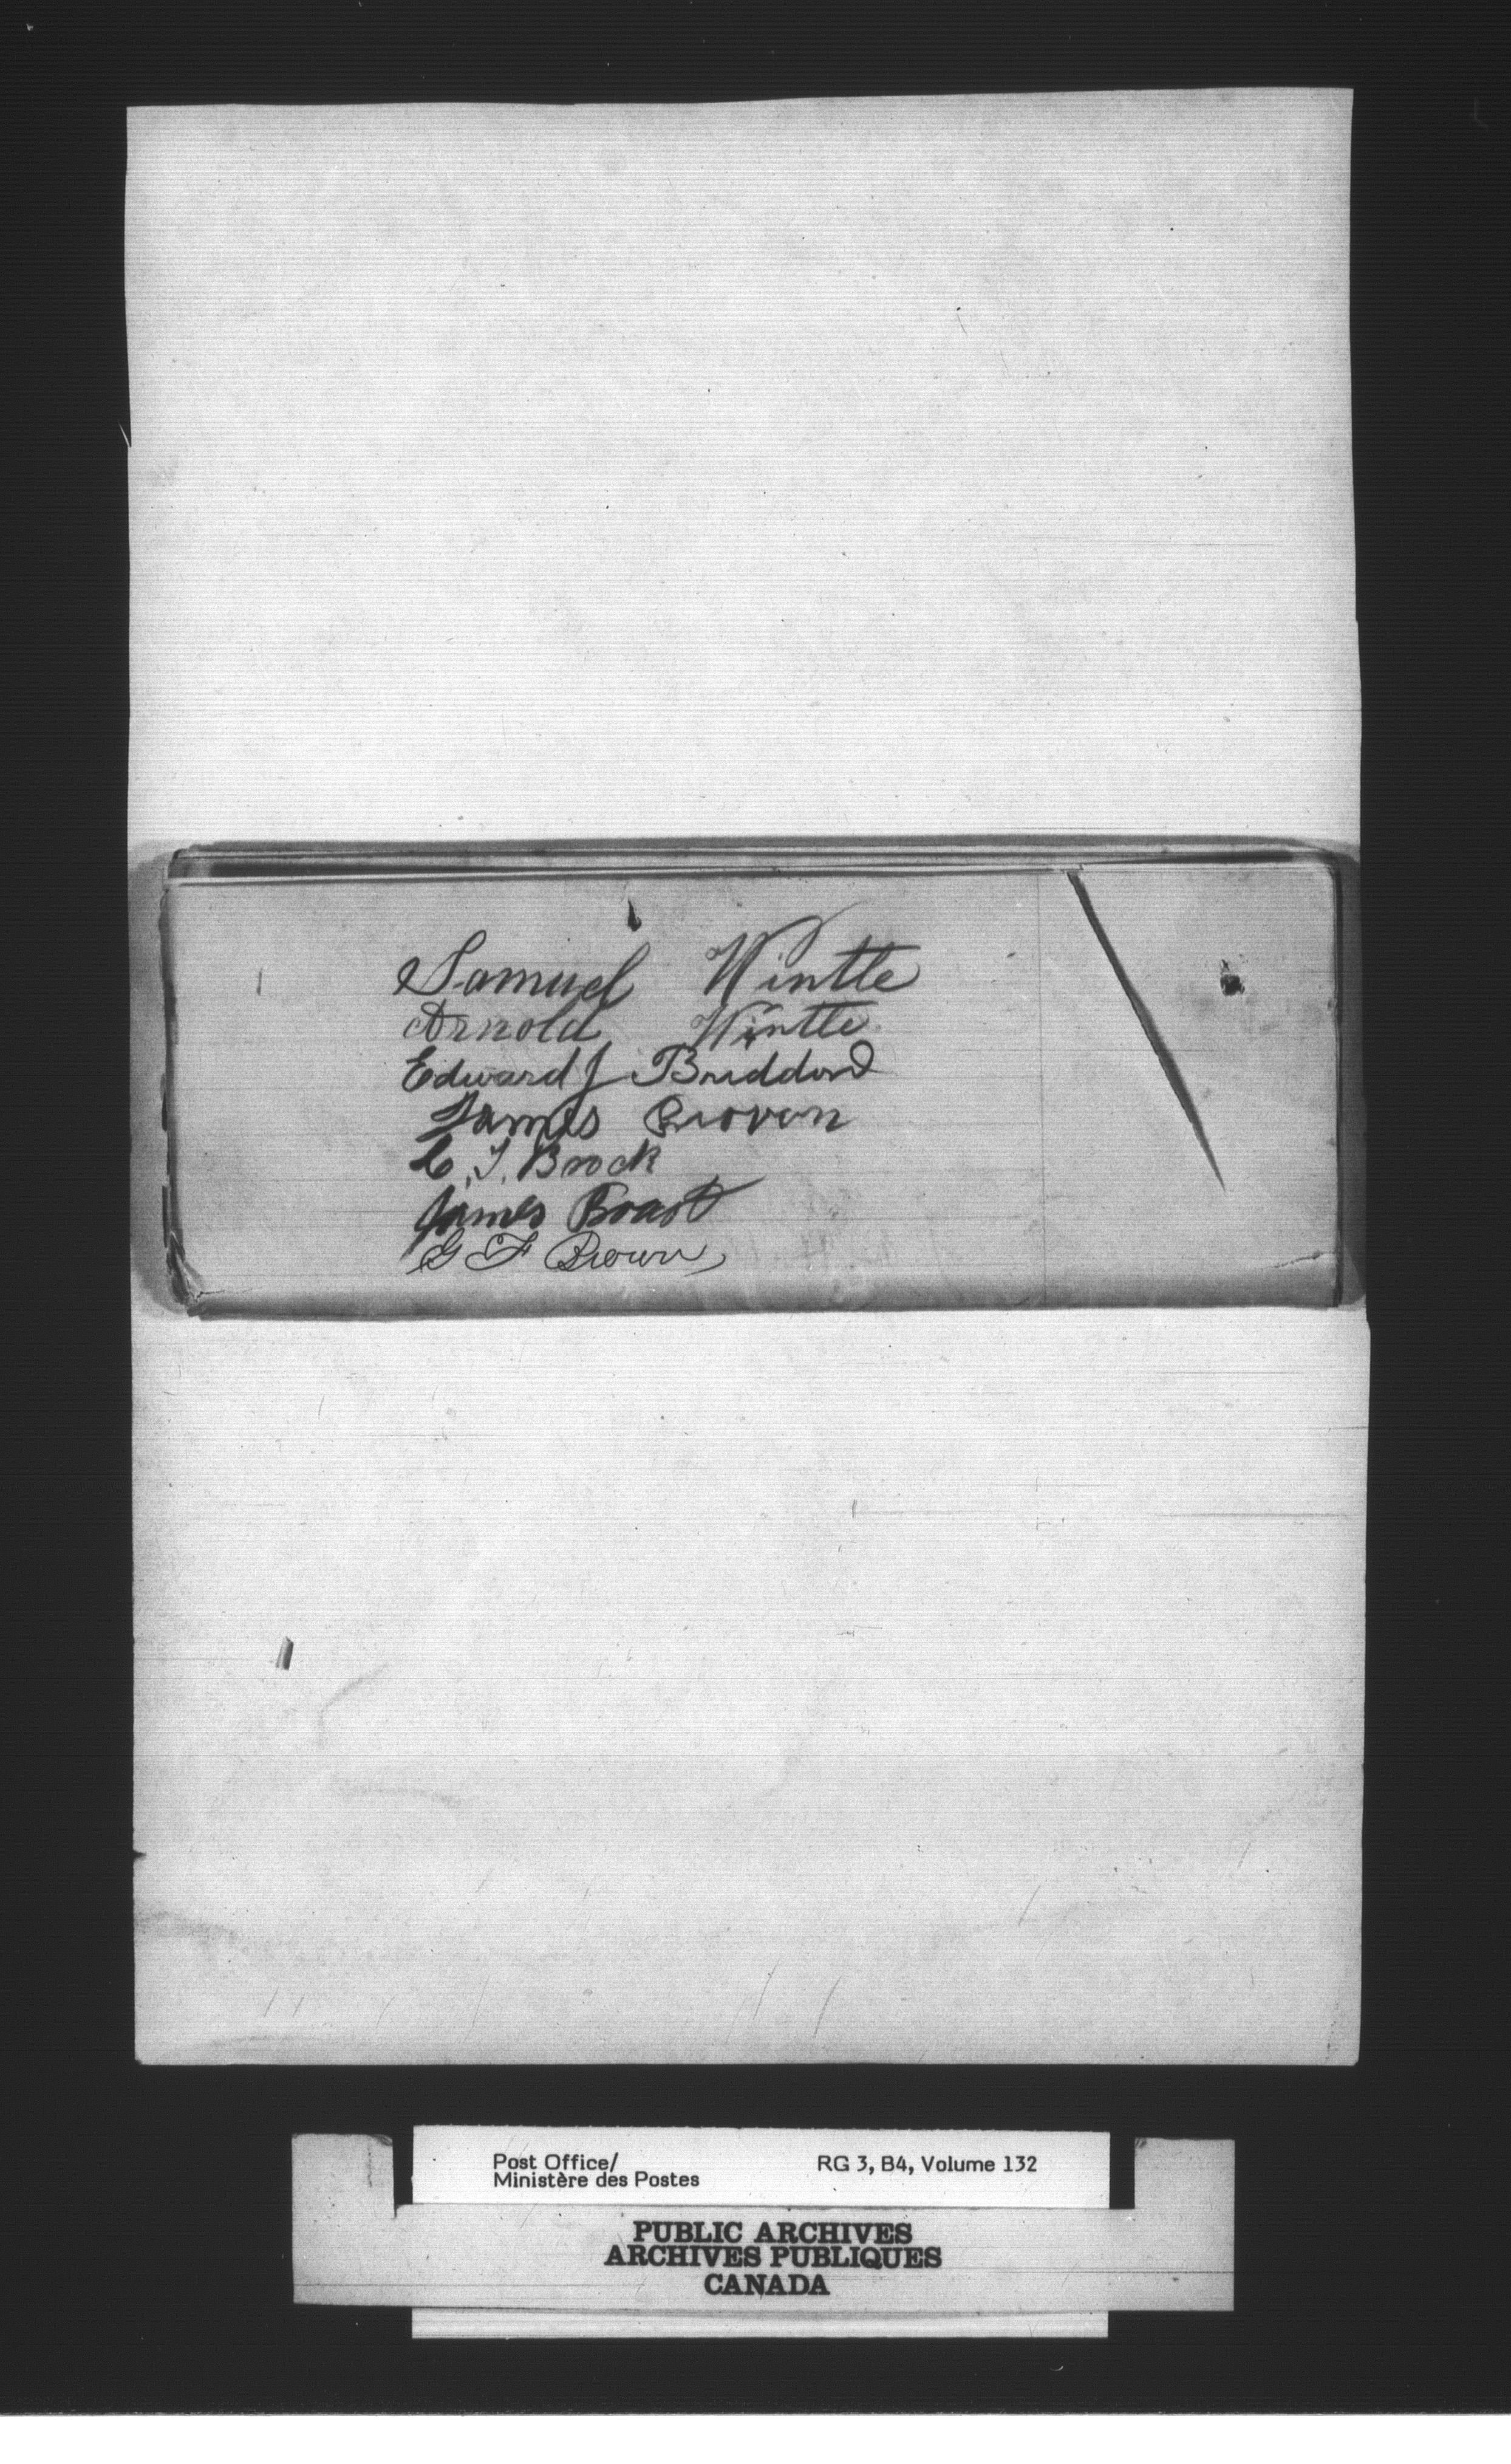 Samuel Wintle
Arnold Wintle
Edward J
James Brown
C. J. Brock
James Boast
G F Brown
Post Office/ RG 3, B4, Volume 132
Ministère des Postes
PUBLIC ARCHIVES
ARCHIVES PUBLIQUES
CANADA